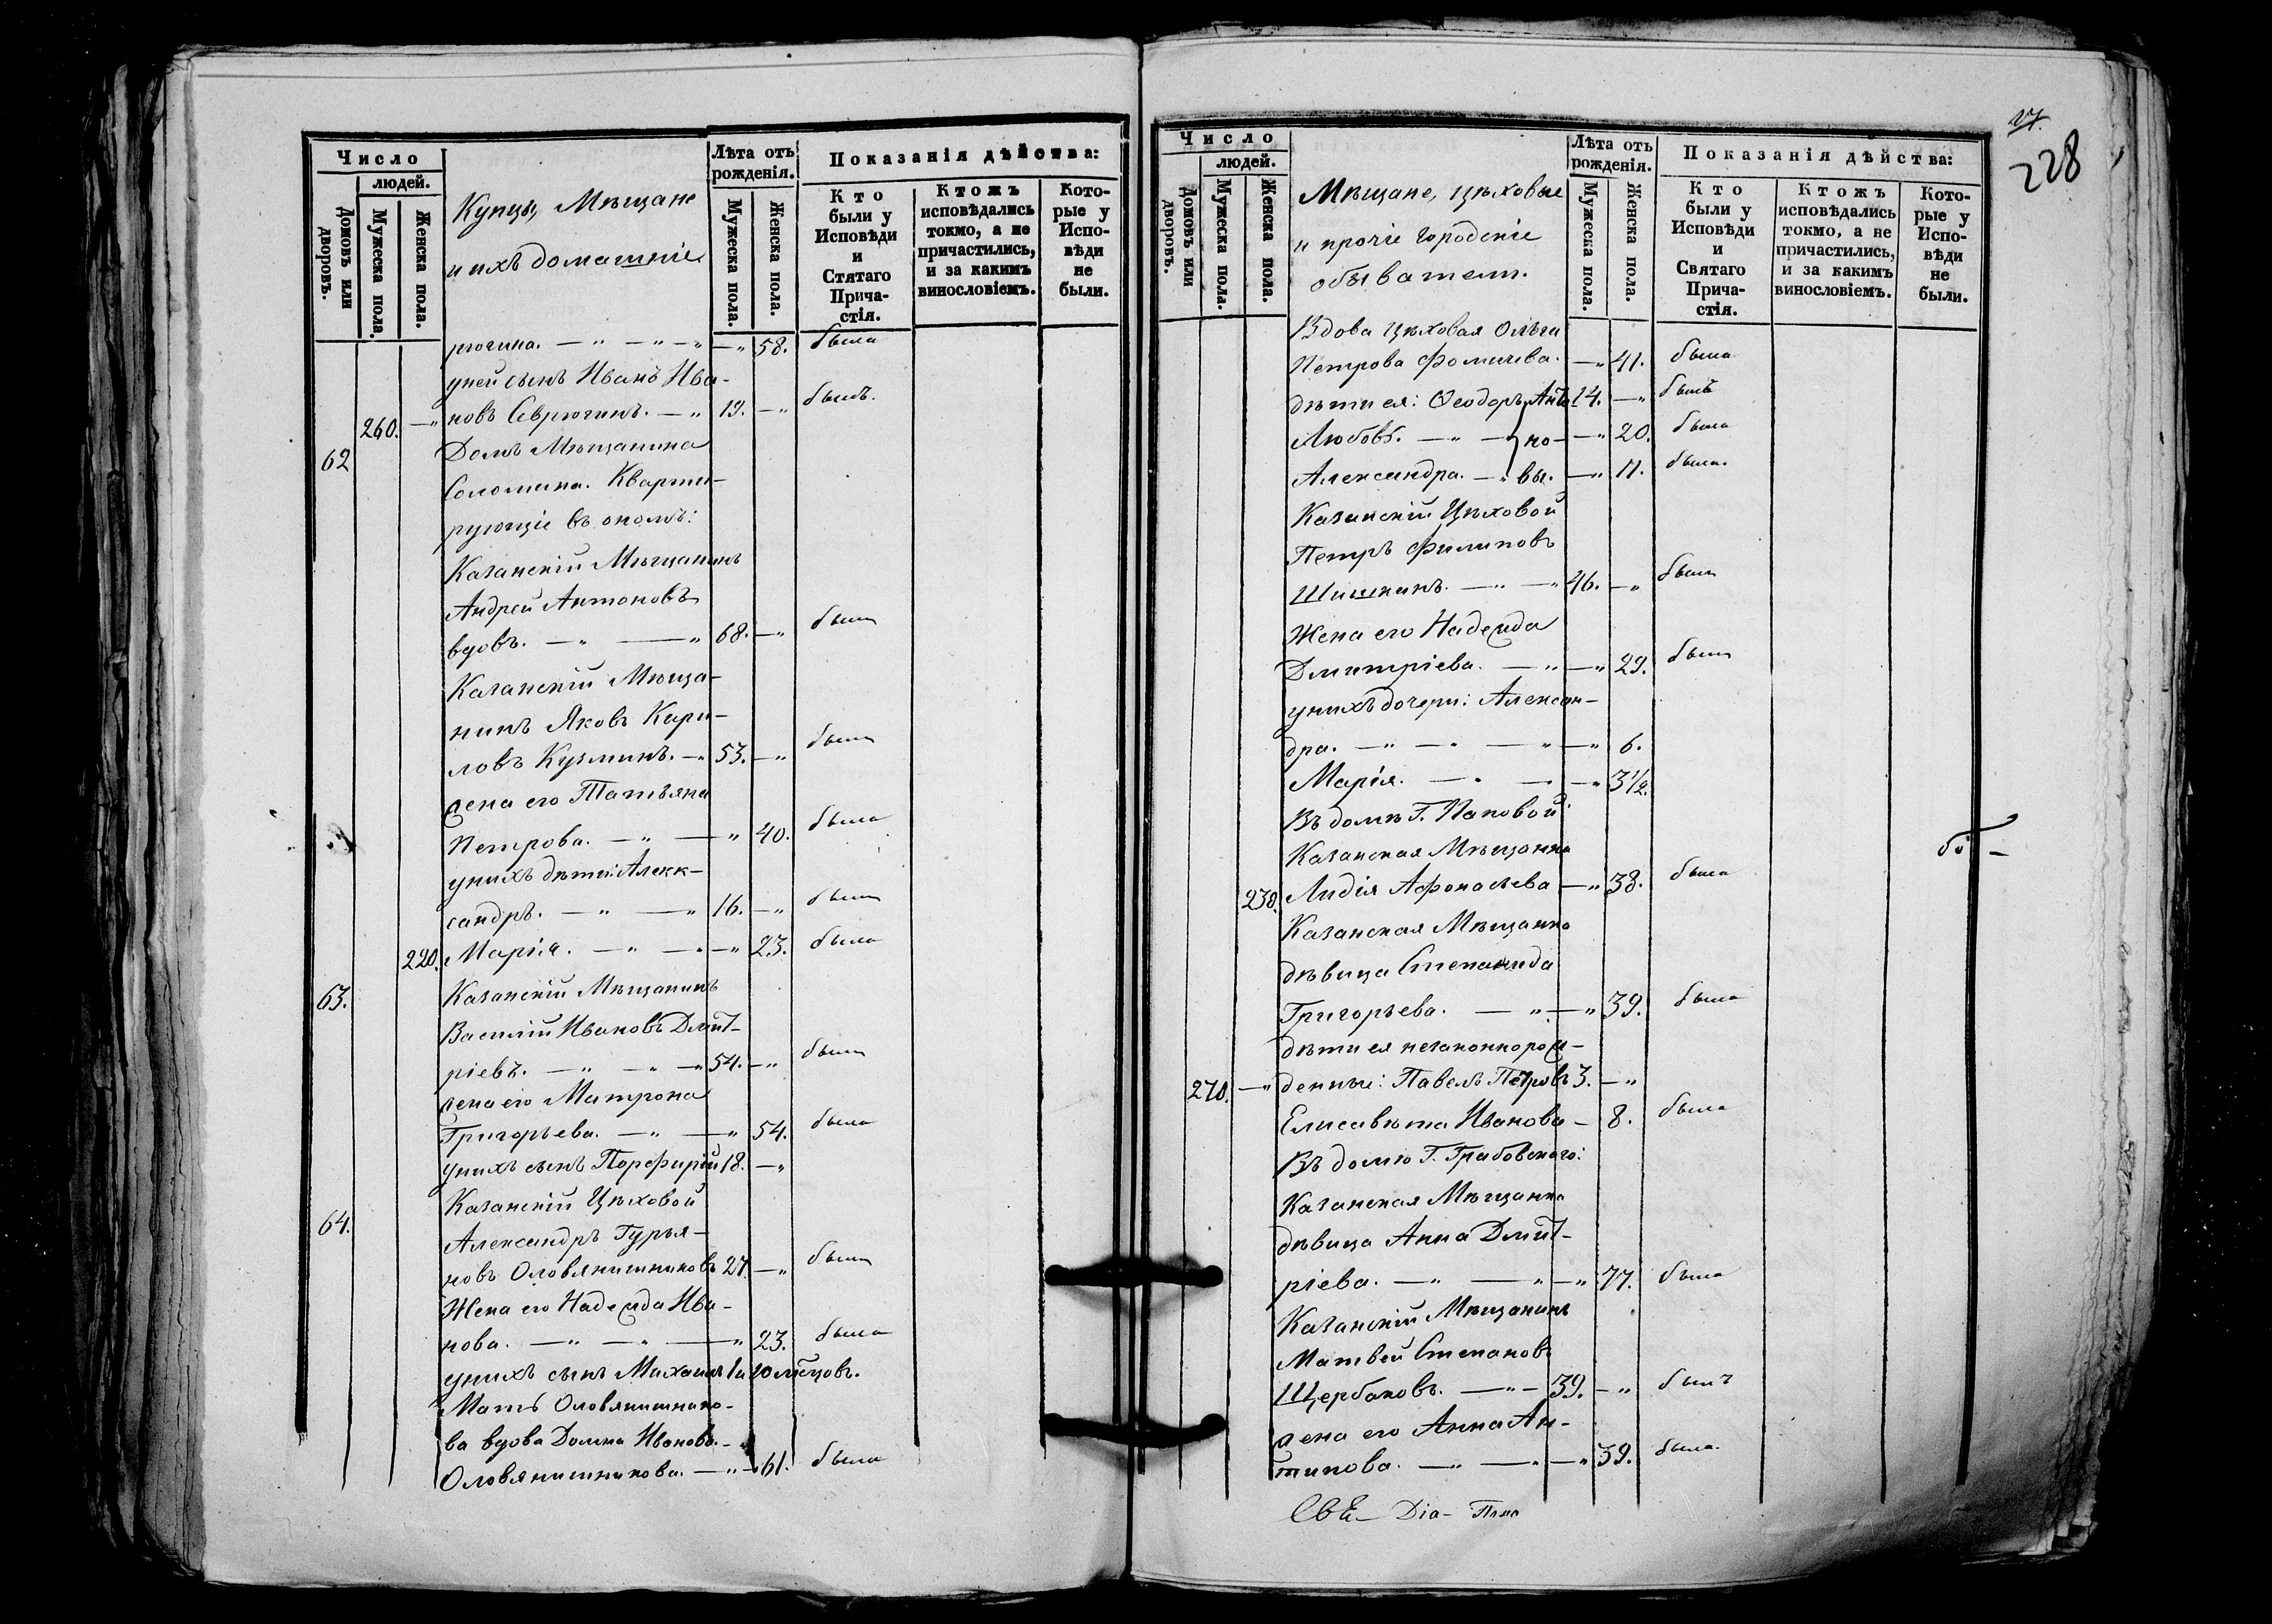 Число
людей.
Домовъ или дворовъ.
Мужеска пола.
Женска пола.
Купцы, Мѣщане
и ихъ домашніе
Лѣта отъ рожденія.
Мужеска пола.
Женска пола.
Показанія дѣйства:
Кто были у Исповѣди и Стятаго Прича-стія.
Ктожъ исповѣдались токмо, а не причастились, и за какимъ винословіемъ.
Кото-рые у Испо-вѣди не были.
рюгина. — „ — „ — „ — „ 58. была
у ней сынъ Иванъ Ива-
260. — „ новъ Севрюгинъ. — „ 19. — „ былъ.
62 Домъ Мѣщанина
Соломина. Кварти-
рующіе въ ономъ:
Казанскій Мѣщанинъ
Андрей Антоновъ
вдовъ. — „ — „ 68. — „ былъ
Казанскій Мѣща-
нинъ Яковъ Кири-
ловъ Кузминъ. — „ 53. — „ былъ
жена его Татьяна
Петрова. — „ — „ 40. была
у нихъ дѣти: Алек-
сандръ. — „ — „ 16. — „ былъ
220. Марія. — „ — „ — „ 23. была
63. Казанскій Мѣщанинъ
Василій Ивановъ Дмит-
ріевъ. — „ — „ — „ 54. — „ былъ
жена его Матрона
Григорьева. — „ — „ 54. была
у нихъ сынъ Порфирій 18. — „
64. Казанскій Цѣховой
Александръ Гурья-
новъ Оловянишниковъ 27. — „ былъ
Жена его Надежда Ива-
нова. — „ — „ — „ 23. была
у нихъ сынъ Михаилъ 1 и 10 мѣсцовъ.
Мать Оловянишнико-
ва вдова Домна Иванова. — „
Оловянишникова. — „ — 61. была
27.
228
Число
людей.
Домовъ или дворовъ.
Мужеска пола.
Женска пола.
Мѣщане, цѣховые
и прочіе городскіе
обыватели.
Лѣта отъ рожденія.
Мужеска пола.
Женска пола.
Показанія дѣйства:
Кто были у Исповѣди и Святаго Прича-стія.
Ктожъ исповѣдались токмо, а не причастились, и за какимъ винословіемъ.
Кото-рые у Испо-вѣди не были.
Вдова цѣховая Ольга
Петрова Фомичева. — „ 41. была
дѣти ея: Ѳеодоръ Анто 14. — „ былъ
Любовь. — „ — но — — „ 20. была
Александра. — „ вы. — „ 11. была.
Казанскій Цѣховой
Петръ Филиповъ
Шишкинъ. — „ — „ 46. — „ былъ
Жена его Надежда
Дмитріева. — „ — „ 29. была
у нихъ дочери: Алексан-
дра. — „ — „ — „ — „ 6.
Марія. — „ — — „ 3 1/2.
Въ домѣ Г. Пановой
Казанская Мѣщанка
230. Лидія Афонасьева — „ 38. была
Казанская Мѣщанка
дѣвица Степанида
Григорьева. — „ — „ 39. была
дѣти ея незаконнорож-
270. — „ денные: Павелъ Петровъ 3. — „
Елисавѣта Иванова — 8. была
Въ домѣ Г. Грабовскаго:
Казанская Мѣщанка
дѣвица Анна Дмит-
ріева. — „ — „ — „ 77. была
Казанскій Мѣщанинъ
Матвей Степановъ
Щербаковъ. — „ — 39. — „ былъ
жена его Анна Ан-
типова. — „ — „ — „ 39. была.